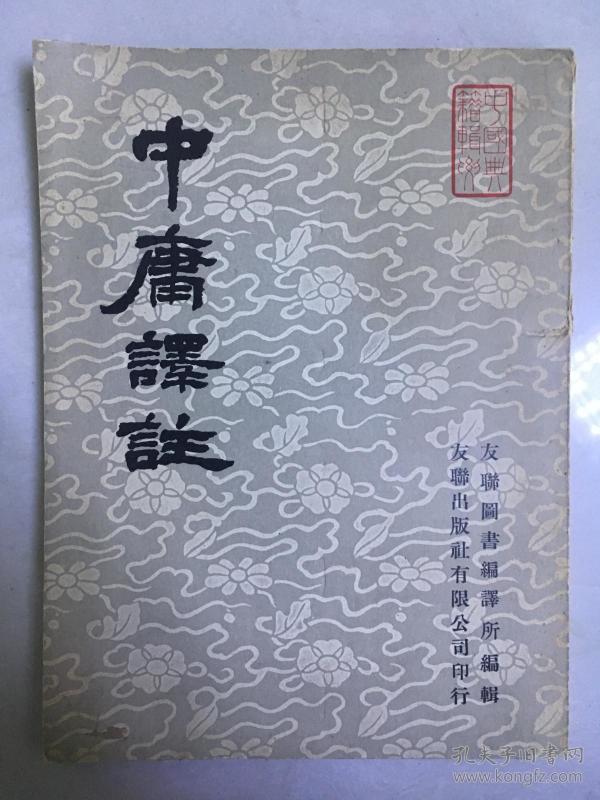 中庸譯註
中國典
籍輯要
友聯圖書編譯所編輯
友聯出版社有限公司印行
孔夫子旧书网
www.kongfz.com